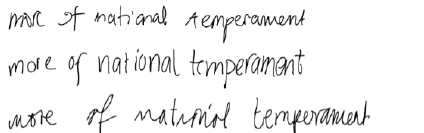 more of national temperament
more of national temperament
more of national temperament